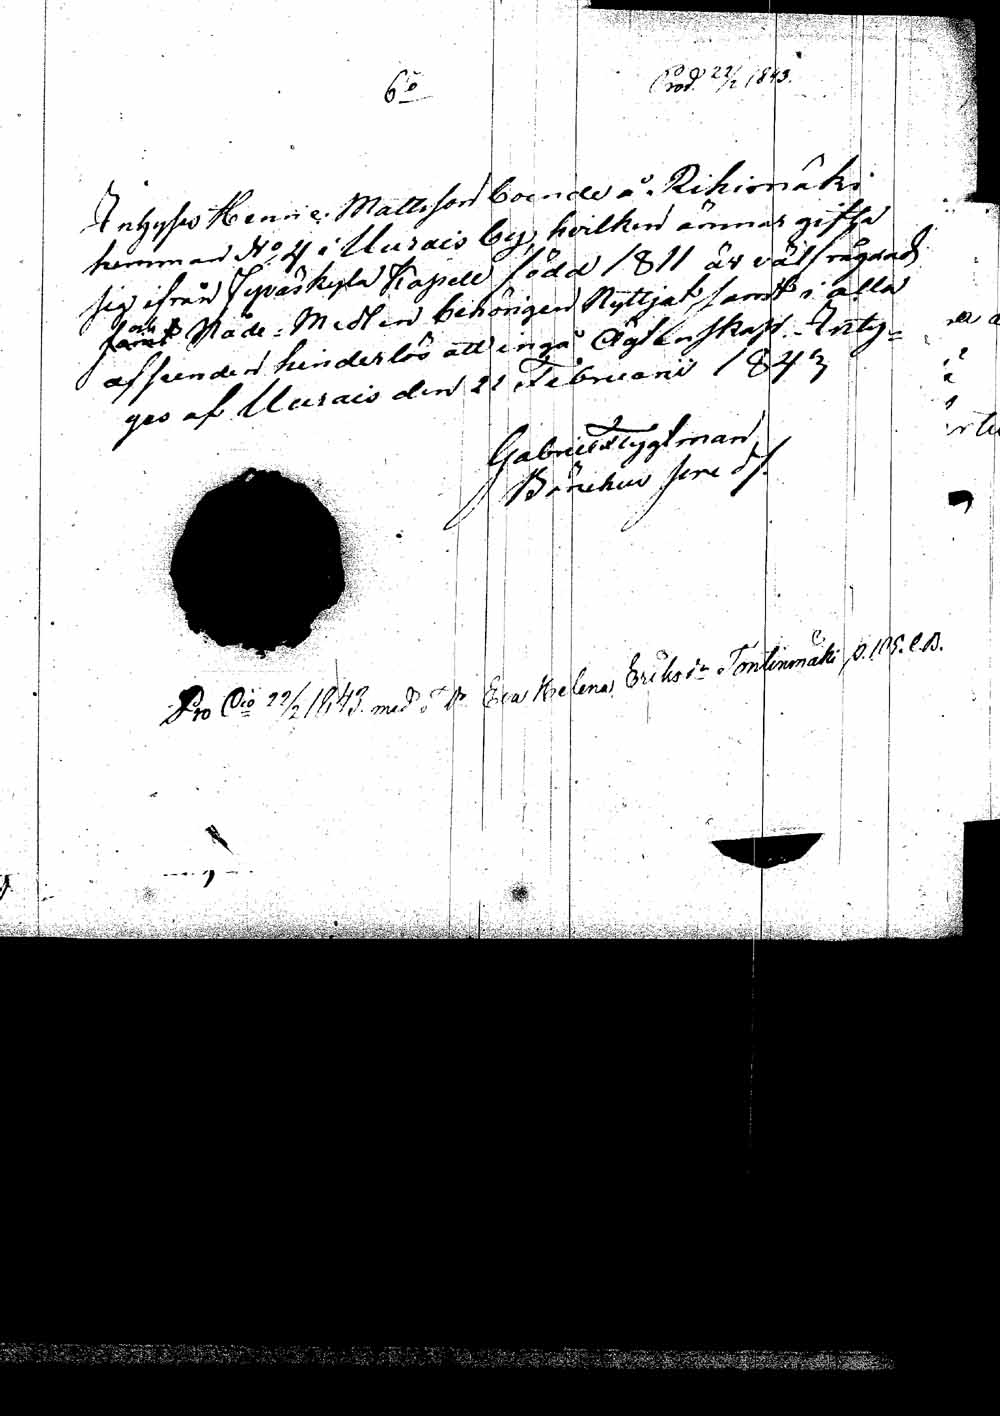 6o
Prod. 22/2 1843.
Inhyses Henric Mattsson boende å Rihimäki
hemman No 4 i Uurais by, hvilken ämnar gifta
sig ifrån Jyväskyla Kapell född 1811 är väl frägdad
och Nåde-Medlen behörigen Nyttjat samt i alla
afseenden hinderlös att ingå Ägtenskap. Inty=
gas af Uurais den 21 Februarii 1843
Gabriel Flygtman
Bönehus
Pro Dio 22/2 1843. med Eva Helena Eriksdr